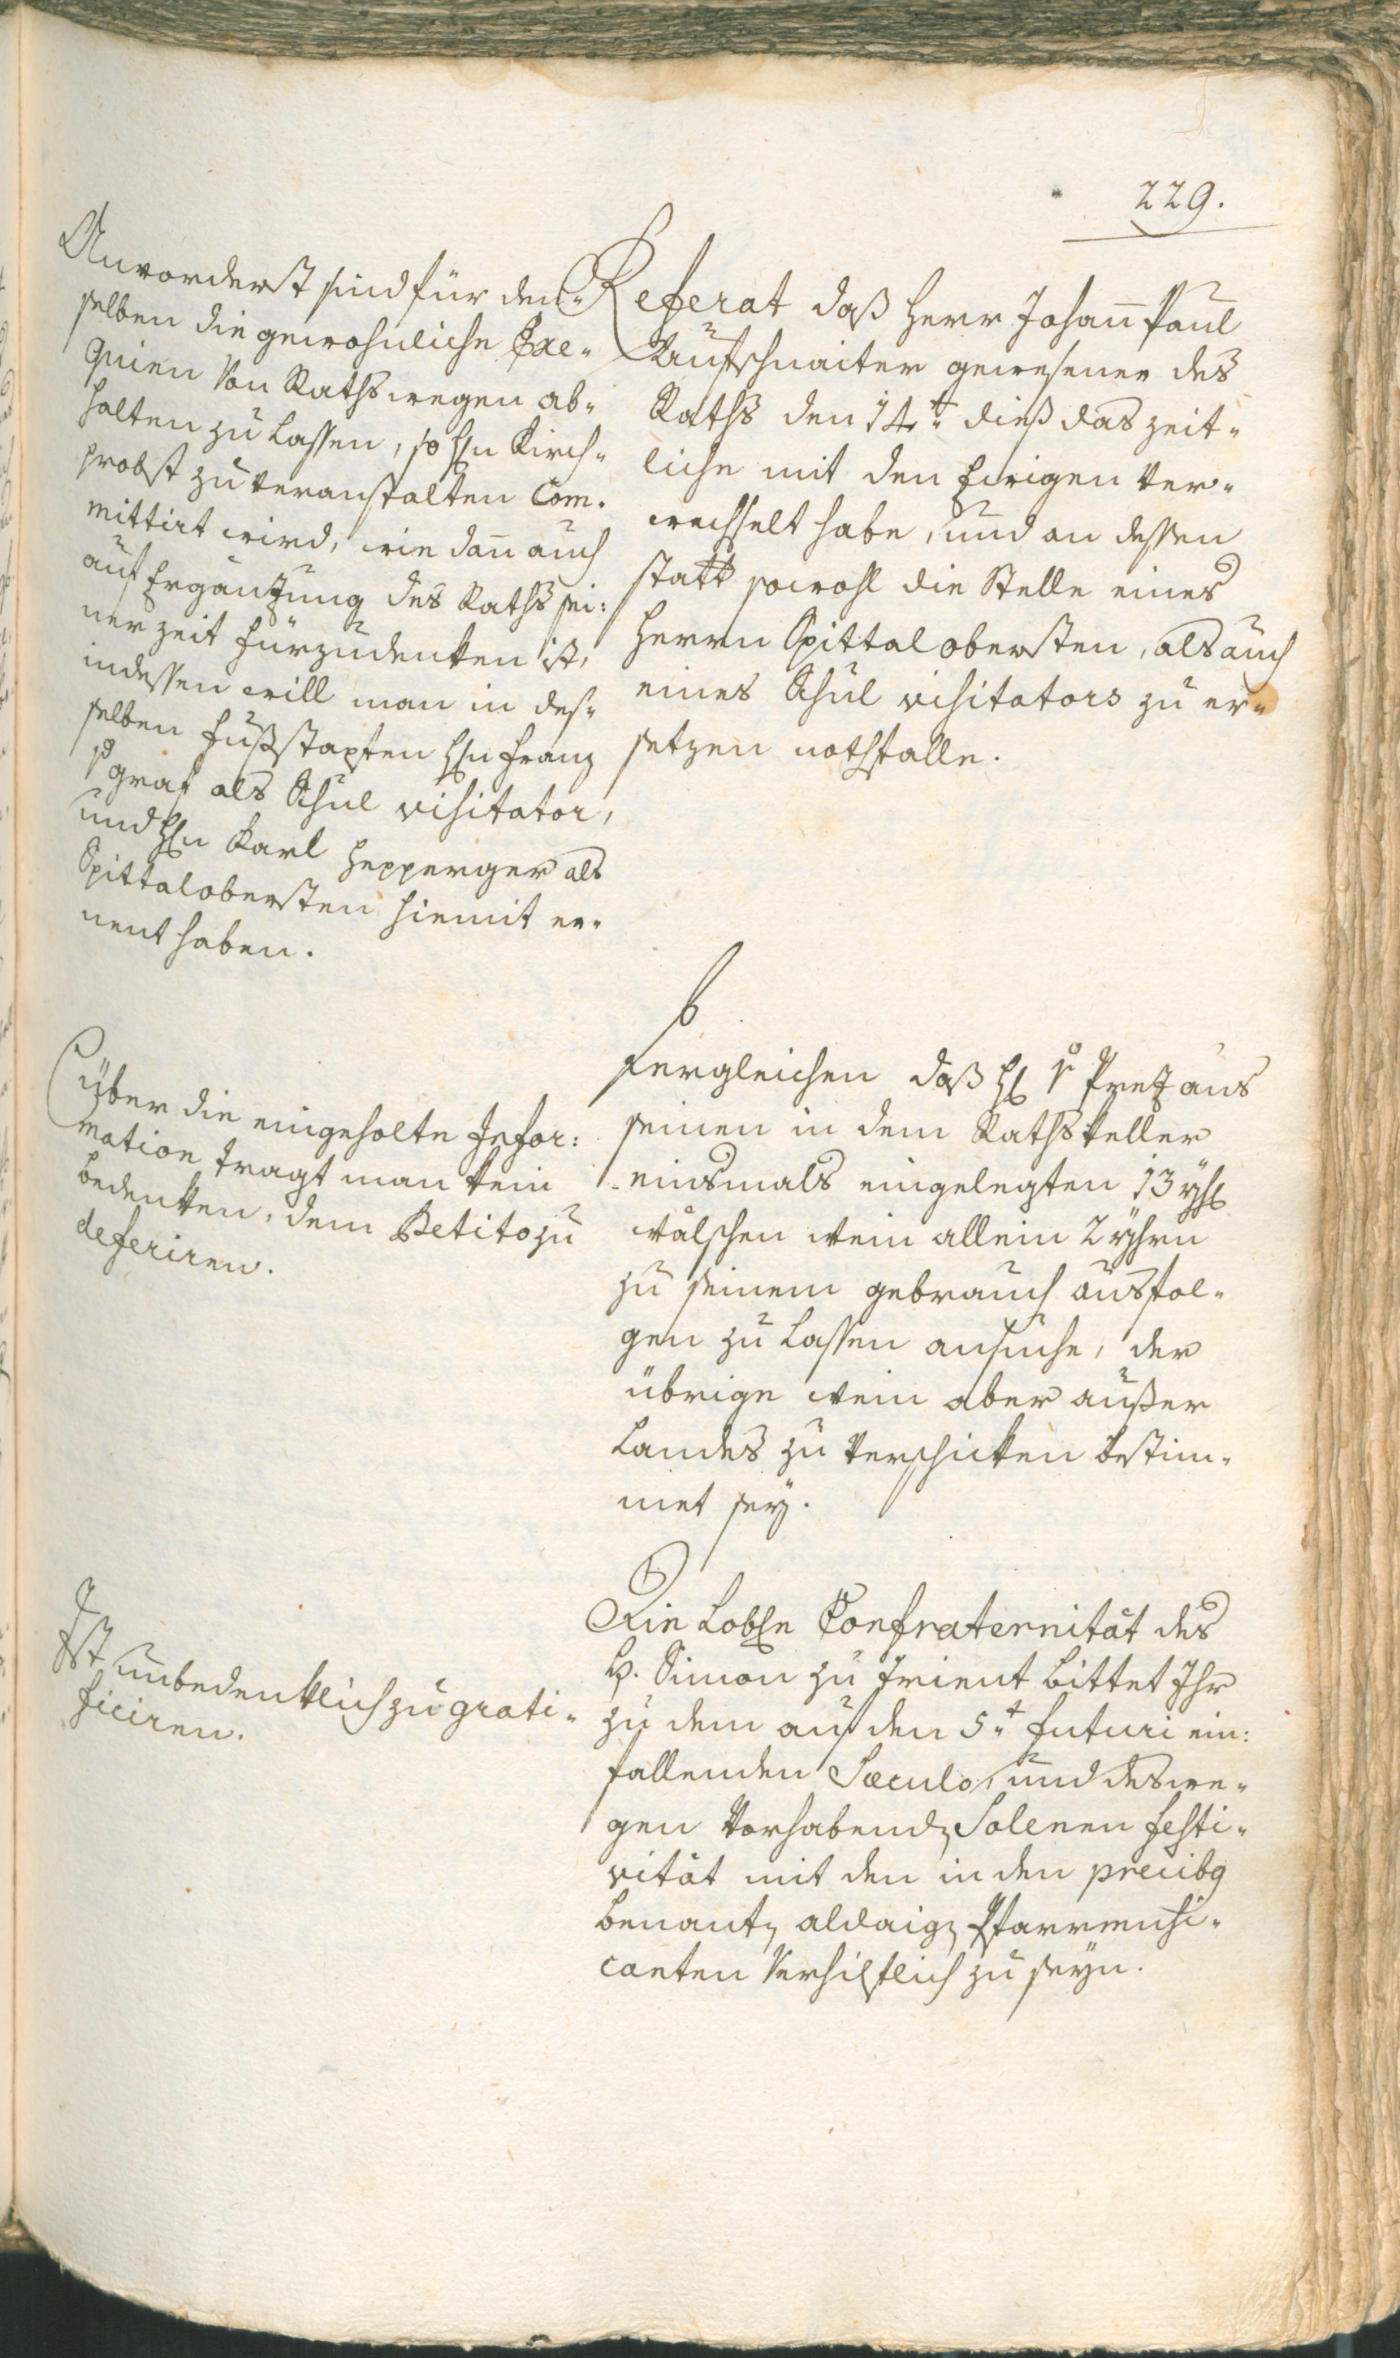 229.
Anvorderst sind für den-
selben die gewohnliche Exe-
quien Von Raths wegen ab-
halten zu lassen, so Hn Kirch-
probst zu veranstalten Com-
mittirt wird, wie dan̄ auch
auf Ergäntzung des Raths sei:
ner zeit fürzudenken ist,
indessen will man in des-
selben fußstapfen Hn Franz
graf als Schul visitator,
und Hn Karl Hepperger als
Spittalobersten hiemit er-
nent haben.
Referat daß Herr Johan̄ Paul
Aufschnaiter gewesener des
Raths den 14t dieß das zeit-
liche mit den Ewigen ver-
wechselt habe, und an dessen
statt sowohl die Stelle eines
Herrn Spittal obersten, als auch
eines Schul visitators zu er-
setzen nothfalle.
Über die eingeholte Infor:
mation tragt man kein
bedenken, dem Petito zu
deferiren.
dergleichen daß H. Pretz aus
seinen in dem Rathskeller
einsmals eingelegten 13 yh
wälschen wein allein 2 yhrn
zu seinem gebrauch ausfol-
gen zu lassen ansuche, der
übrige wein aber außer
Landes zu verschicken bestim-
met sey.
Ist unbedenklich zu grati-
ficiren.
Ein Lobln Confraternität des
H. Simon zu Trient bittet Ihr
zu dem auf den 5t futuri ein:
fallenden Sæculo, und deswe-
gen vorhabend Solenen festi-
vität mit den in den precibg
benant aldaig Pfarrmusi-
canten verhilflich zu seyn.